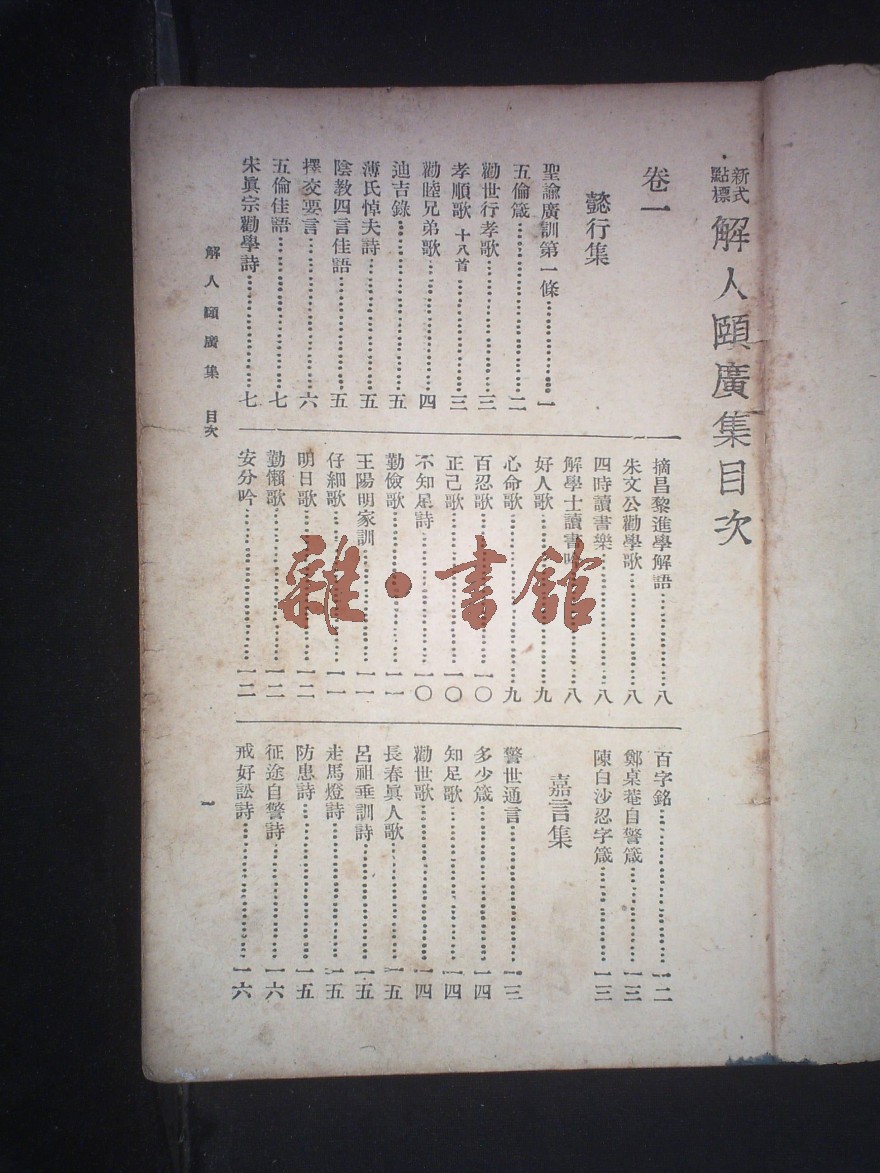 新式標點 解人頤廣集目次
卷一
懿行集
聖諭廣訓第一條…………一
五倫箴…………二
勸世行孝歌…………三
孝順歌 十八首…………三
勸睦兄弟歌…………四
迪吉錄…………五
薄氏悼夫詩…………五
陰教四言佳語…………五
擇交要言…………六
五倫佳語…………七
宋眞宗勸學詩…………七
摘昌黎進學解語…………八
朱文公勸學歌…………八
四時讀書樂…………八
解學士讀書吟…………八
好人歌…………九
心命歌…………九
百忍歌…………一〇
正己歌…………一〇
不知足詩…………一〇
勤儉歌…………一一
王陽明家訓…………一一
仔細歌…………一一
明日歌…………一二
勤懶歌…………一二
安分吟…………一二
百字銘…………一二
鄭桌菴自警箴…………一三
陳白沙忍字箴…………一三
嘉言集
警世通言…………一三
多少箴…………一四
知足歌…………一四
勸世歌…………一四
長春眞人歌…………一五
呂祖垂訓詩…………一五
走馬燈詩…………一五
防患詩…………一五
征途自警詩…………一六
戒好訟詩…………一六
解人頤廣集 目次
一
雜·書館